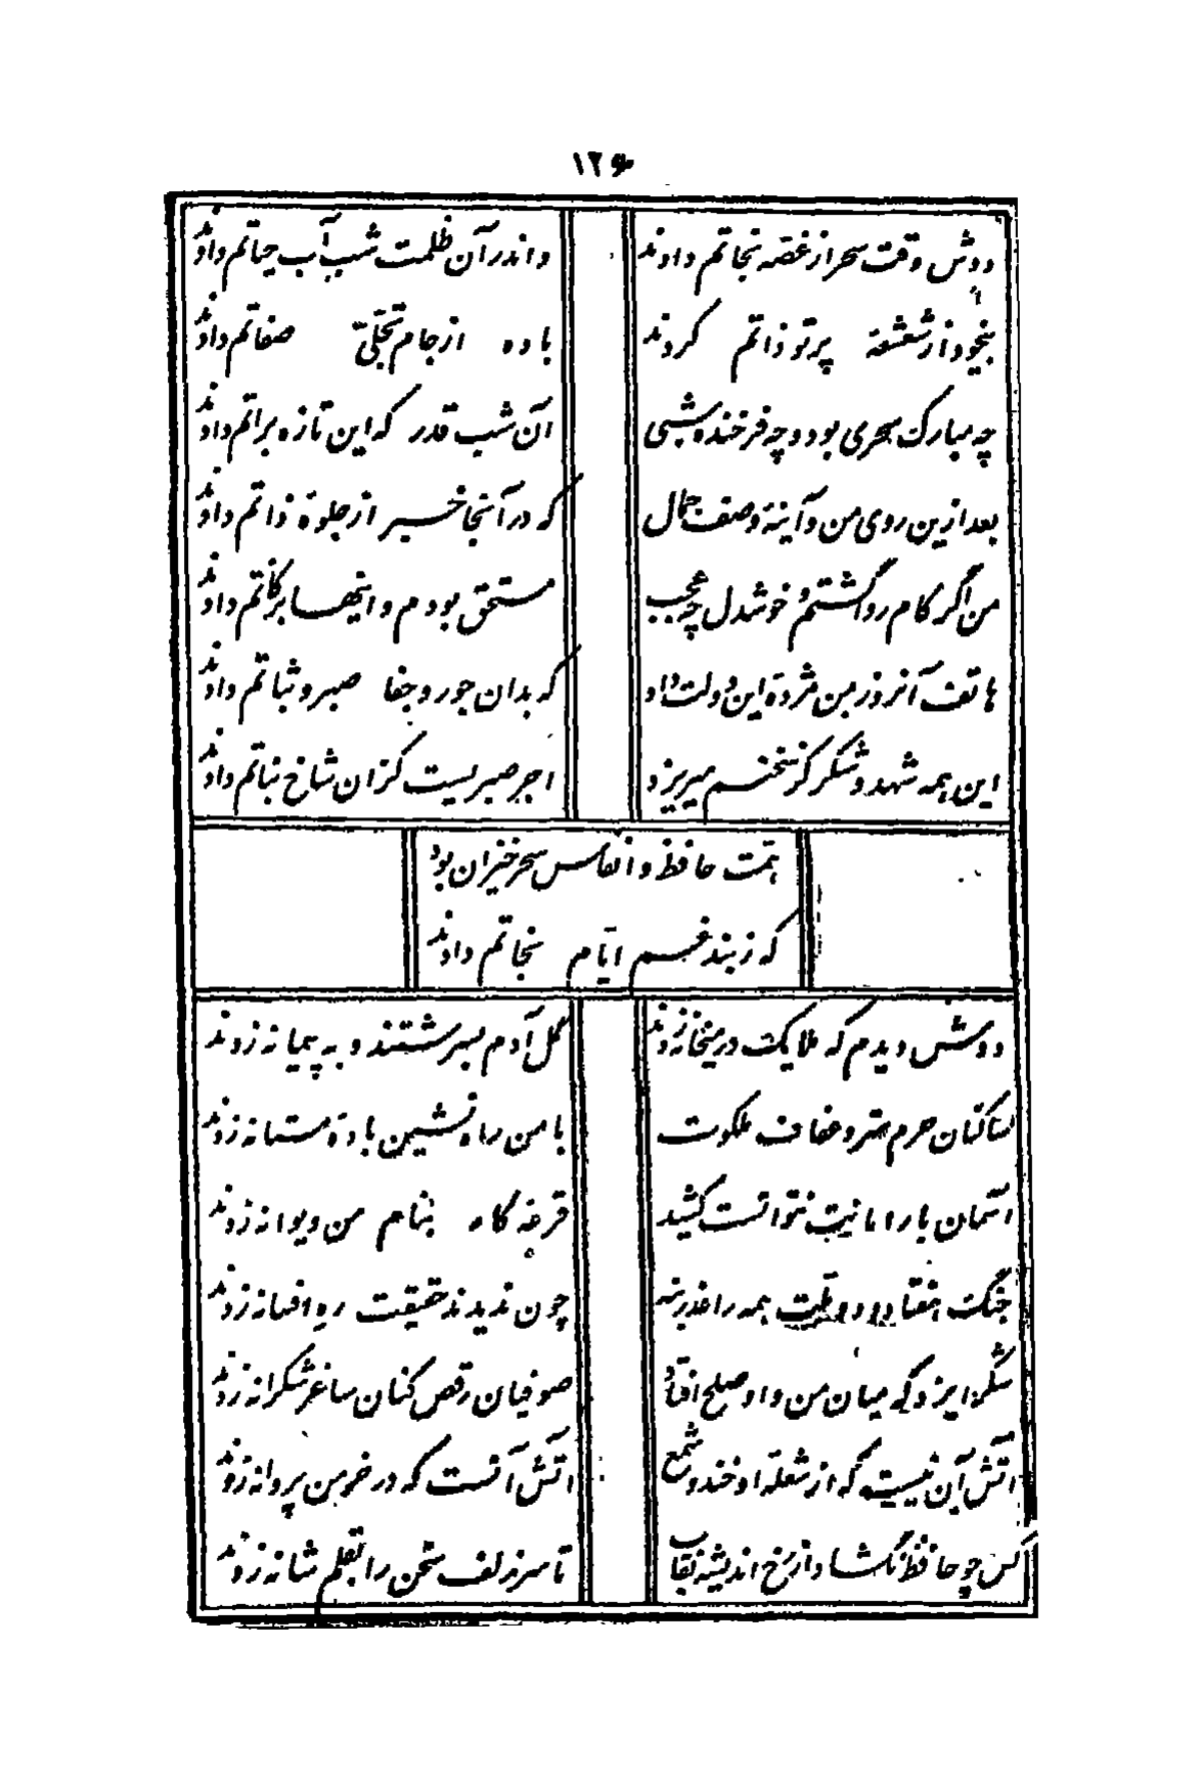 ۱۲۶
دوش وقت سحر از غصه نجاتم دادند
واندر آن ظلمت شب آب حیاتم دادند
بیخود از شعشعهٔ پرتو ذاتم کردند
باده از جام تجلّی صفاتم دادند
چه مبارک سحری بود و چه فرخنده شبی
آن شب قدر که این تازه براتم دادند
بعد ازین روی من و آینهٔ وصف جمال
که در آنجا خبر از جلوهٔ ذاتم دادند
من اگر کام روا گشتم و خوشدل چه عجب
مستحق بودم و اینها بزکاتم دادند
هاتف آنروز بمن مژدهٔ این دولت داد
که بدان جور و جفا صبر و ثباتم دادند
این همه شهد و شکر کز سخنم میریزد
اجر صبریست کزان شاخ نباتم دادند
همّت حافظ و انفاس سحرخیزان بود
که ز بند غم ایّام نجاتم دادند
دوش دیدم که ملایک در میخانه زدند
گل آدم بسرشتند و به پیمانه زدند
ساکنان حرم ستر و عفاف ملکوت
با من راه نشین بادهٔ مستانه زدند
آسمان بار امانت نتوانست کشید
قرعه کار بنام من دیوانه زدند
جنگ هفتاد و دو ملّت همه را عذر بنه
چون ندیدند حقیقت ره افسانه زدند
شکر ایزد که میان من و او صلح افتاد
صوفیان رقص کنان ساغر شکرانه زدند
آتش آن نیست که از شعلهٔ او خندد شمع
آتش آنست که در خرمن پروانه زدند
کس چو حافظ نگشاد از رخ اندیشه نقاب
تا سر زلف سخن را بقلم شانه زدند